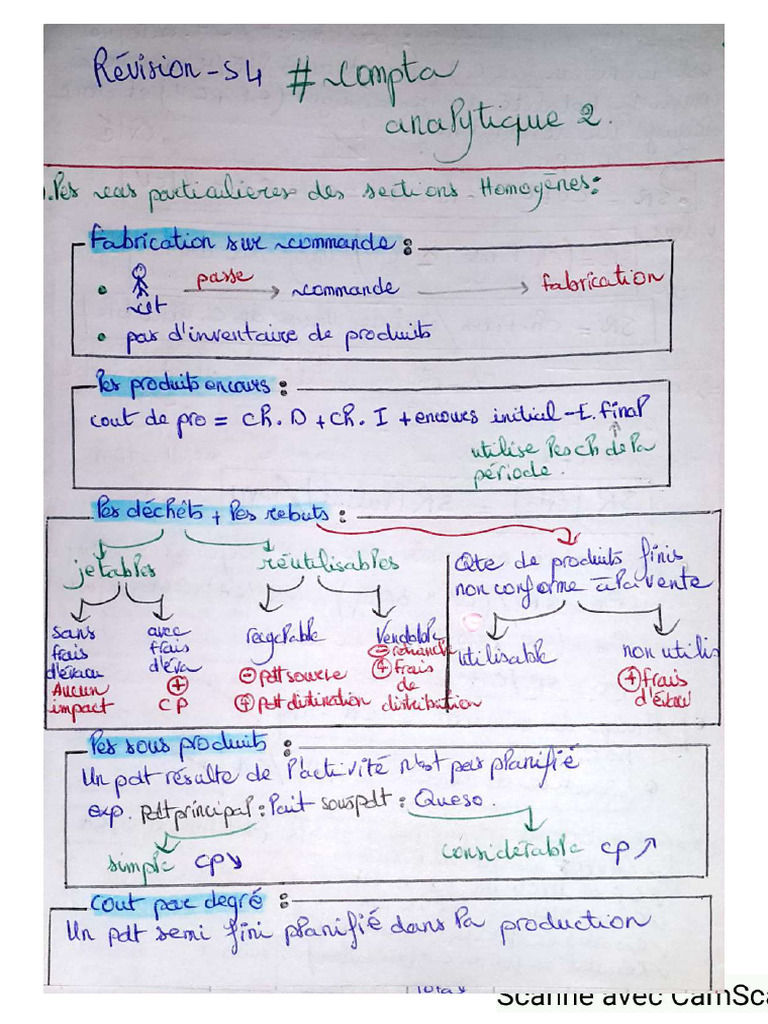 Révision-S4 # compta
analytique 2.
1. Les cas particulieres des sections Homogènes:
Fabrication sur commande :
passe commande fabrication
clt
• pas d'inventaire de produits
Les produits encours :
cout de pro = ch. D + ch. I + encours initial - E. final
utilise les ch de la
période.
Les déchêts + Les rebuts :
jetables réutilisables Qte de produits finis
non conforme à la vente
sans avec recyclable Vendable utilisable non utilis
frais frais
d'évacu d'éva
Aucun impact + CP
- pdt source + pdt distination
+ frais de distribution
+ frais d'évacu
Les sous produits :
Un pdt résulte de l'activité n'est pas planifié
exp. pdt principal : lait sous pdt : Queso.
simple CP↘ considérable CP↗
cout par degré :
Un pdt semi fini planifié dans la production
Scanné avec CamSca